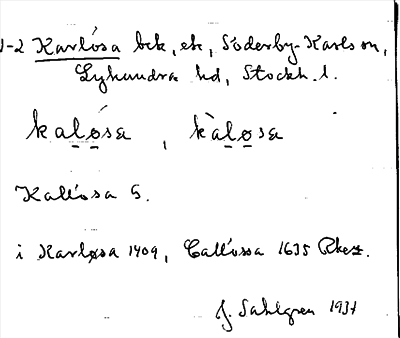 1-2 Karlósa bck, ek, Söderby-Karls sn,
Lyhundra hd, Stockh. l.
kalósa, kàlosa
Kallósa G.
i Karløsa 1409, Callóssa 1635 Rkest.
J. Sahlgren 1937